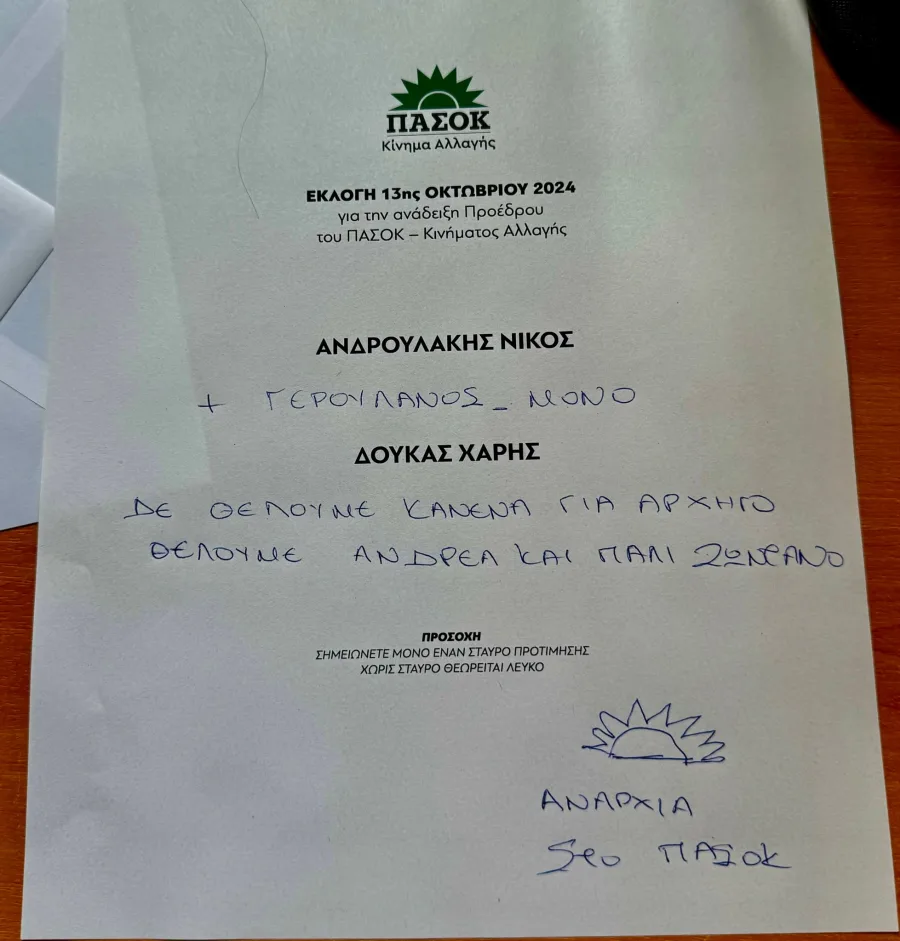 ΠΑΣΟΚ
Κίνημα Αλλαγής
ΕΚΛΟΓΗ 13ης ΟΚΤΩΒΡΙΟΥ 2024
για την ανάδειξη Προέδρου
του ΠΑΣΟΚ – Κινήματος Αλλαγής
ΑΝΔΡΟΥΛΑΚΗΣ ΝΙΚΟΣ
+ ΓΕΡΟΥΛΑΝΟΣ _ ΜΟΝΟ
ΔΟΥΚΑΣ ΧΑΡΗΣ
ΔΕ ΘΕΛΟΥΜΕ ΚΑΝΕΝΑ ΓΙΑ ΑΡΧΗΓΟ
ΘΕΛΟΥΜΕ ΑΝΔΡΕΑ ΚΑΙ ΠΑΛΙ ΖΩΝΤΑΝΟ
ΠΡΟΣΟΧΗ
ΣΗΜΕΙΩΝΕΤΕ ΜΟΝΟ ΕΝΑΝ ΣΤΑΥΡΟ ΠΡΟΤΙΜΗΣΗΣ
ΧΩΡΙΣ ΣΤΑΥΡΟ ΘΕΩΡΕΙΤΑΙ ΛΕΥΚΟ
ΑΝΑΡΧΙΑ
Στο ΠΑΣΟΚ